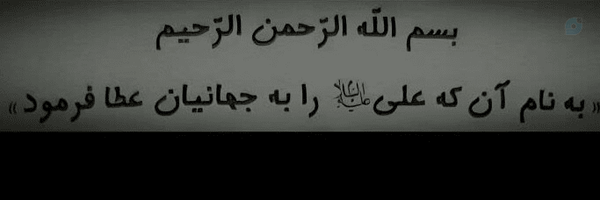 بسم اللّه الرّحمن الرّحیم
«به نام آن که علی علیه‌السلام را به جهانیان عطا فرمود»